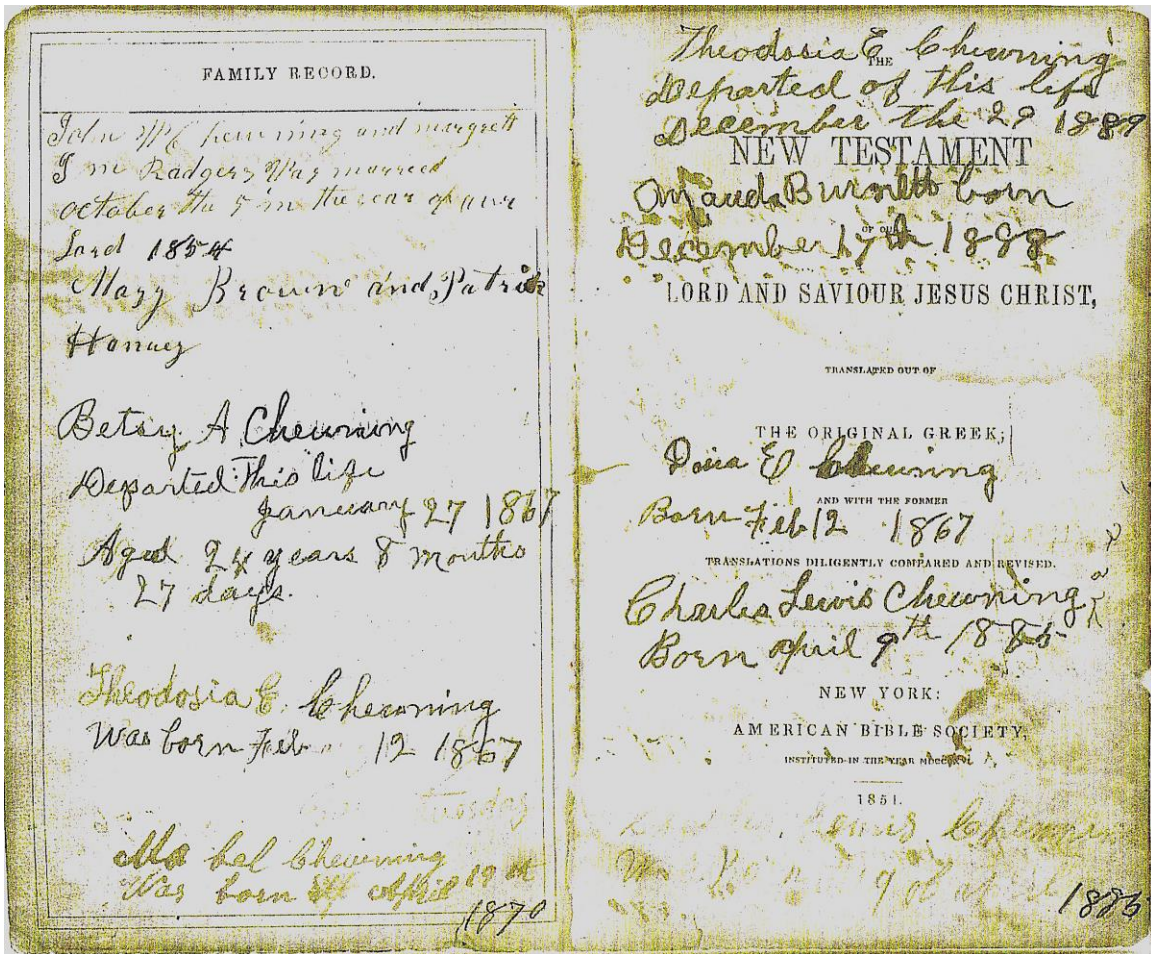 FAMILY RECORD.
John M Chewning and margrett
J m Radgers Was married
october the 5 in the year of our
Lord 1854
Mary Brown and Patrick
Honney
Betsy A Chewning
Departed This life
January 27 1867
Aged 24 years 8 months
27 days.
Theodosia E. Chewning
Was born Feb 12 1867
tuesday
Ma bel Chewning
Was born April 19 th
1870
Theodosia E Chewning
THE
Departed of this life
December the 29 1889
NEW TESTAMENT
Mauda Burnett born
OF OUR
December 17th 1888
LORD AND SAVIOUR JESUS CHRIST,
TRANSLATED OUT OF
THE ORIGINAL GREEK;
E Chewning
AND WITH THE FORMER
Born Feb 12 1867
TRANSLATIONS DILIGENTLY COMPARED AND REVISED.
Charles Lewis Chewning
Born April 9th 1885
NEW YORK:
AMERICAN BIBLE SOCIETY,
INSTITUTED IN THE YEAR MDCCCXVI
1851.
Lewis Chewning
9 of april
1885